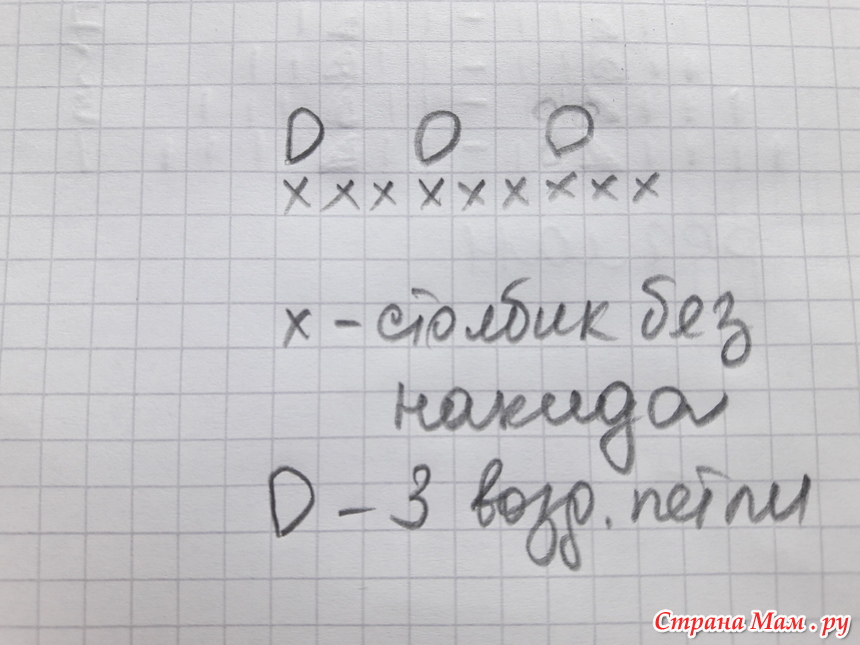 D O O
x x x x x x x x x
x - столбик без
накида
D - 3 возд. петли
Страна Мам.ру